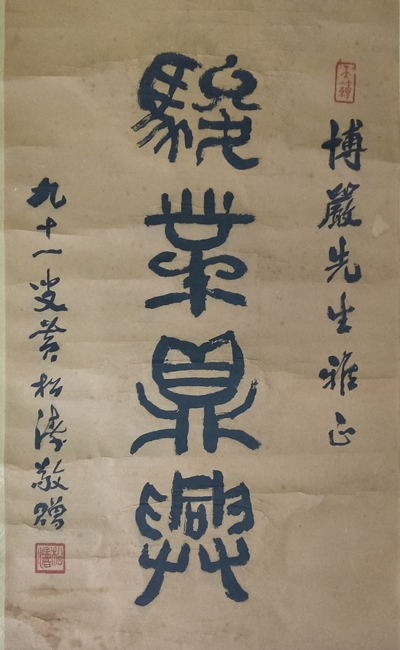 博嚴先生雅正
駿業鼎興
九十一叟黃松濤敬贈